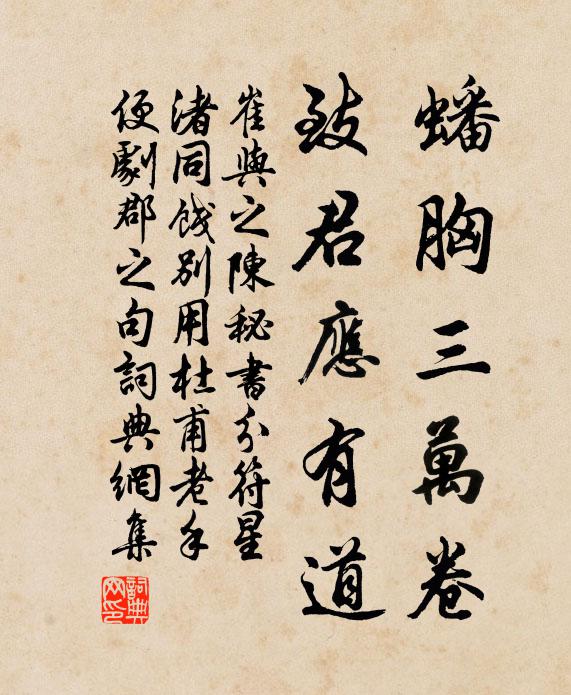 蟠胸三萬卷
致君應有道
崔與之陳秘書分符星
渚同餞別用杜甫老手
便劇郡之句詞典網集
詞典網印